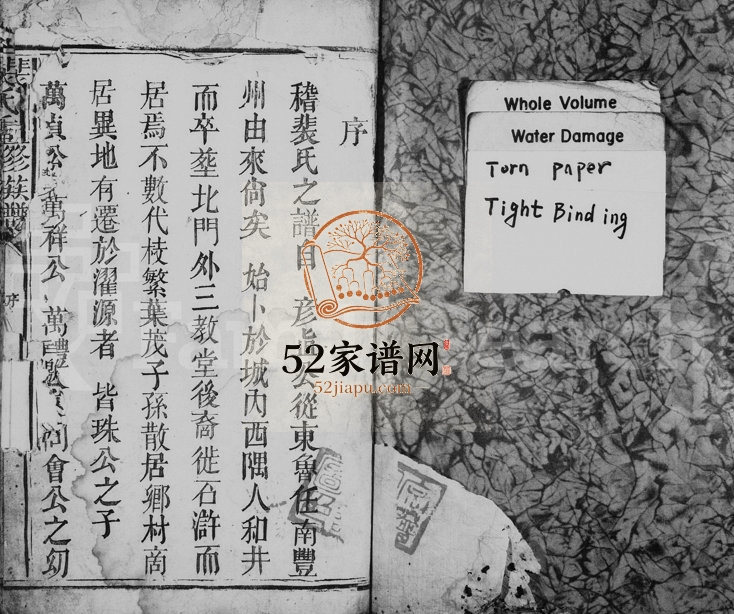 序
稽裴氏之譜自 彥 公從東魯任南豐
州由來尙矣 始卜於城內西隅人和井
而卒塟北門外三教堂後裔徙石滸而
居焉不數代枝繁葉茂子孫散居鄉村啇
居異地有遷於濯源者 皆珠公之子
萬貞公 萬祥公 萬 會公之幼
裴氏 修族譜
序
52家谱网
52jiapu.com
Whole Volume
Water Damage
Torn paper
Tight Binding